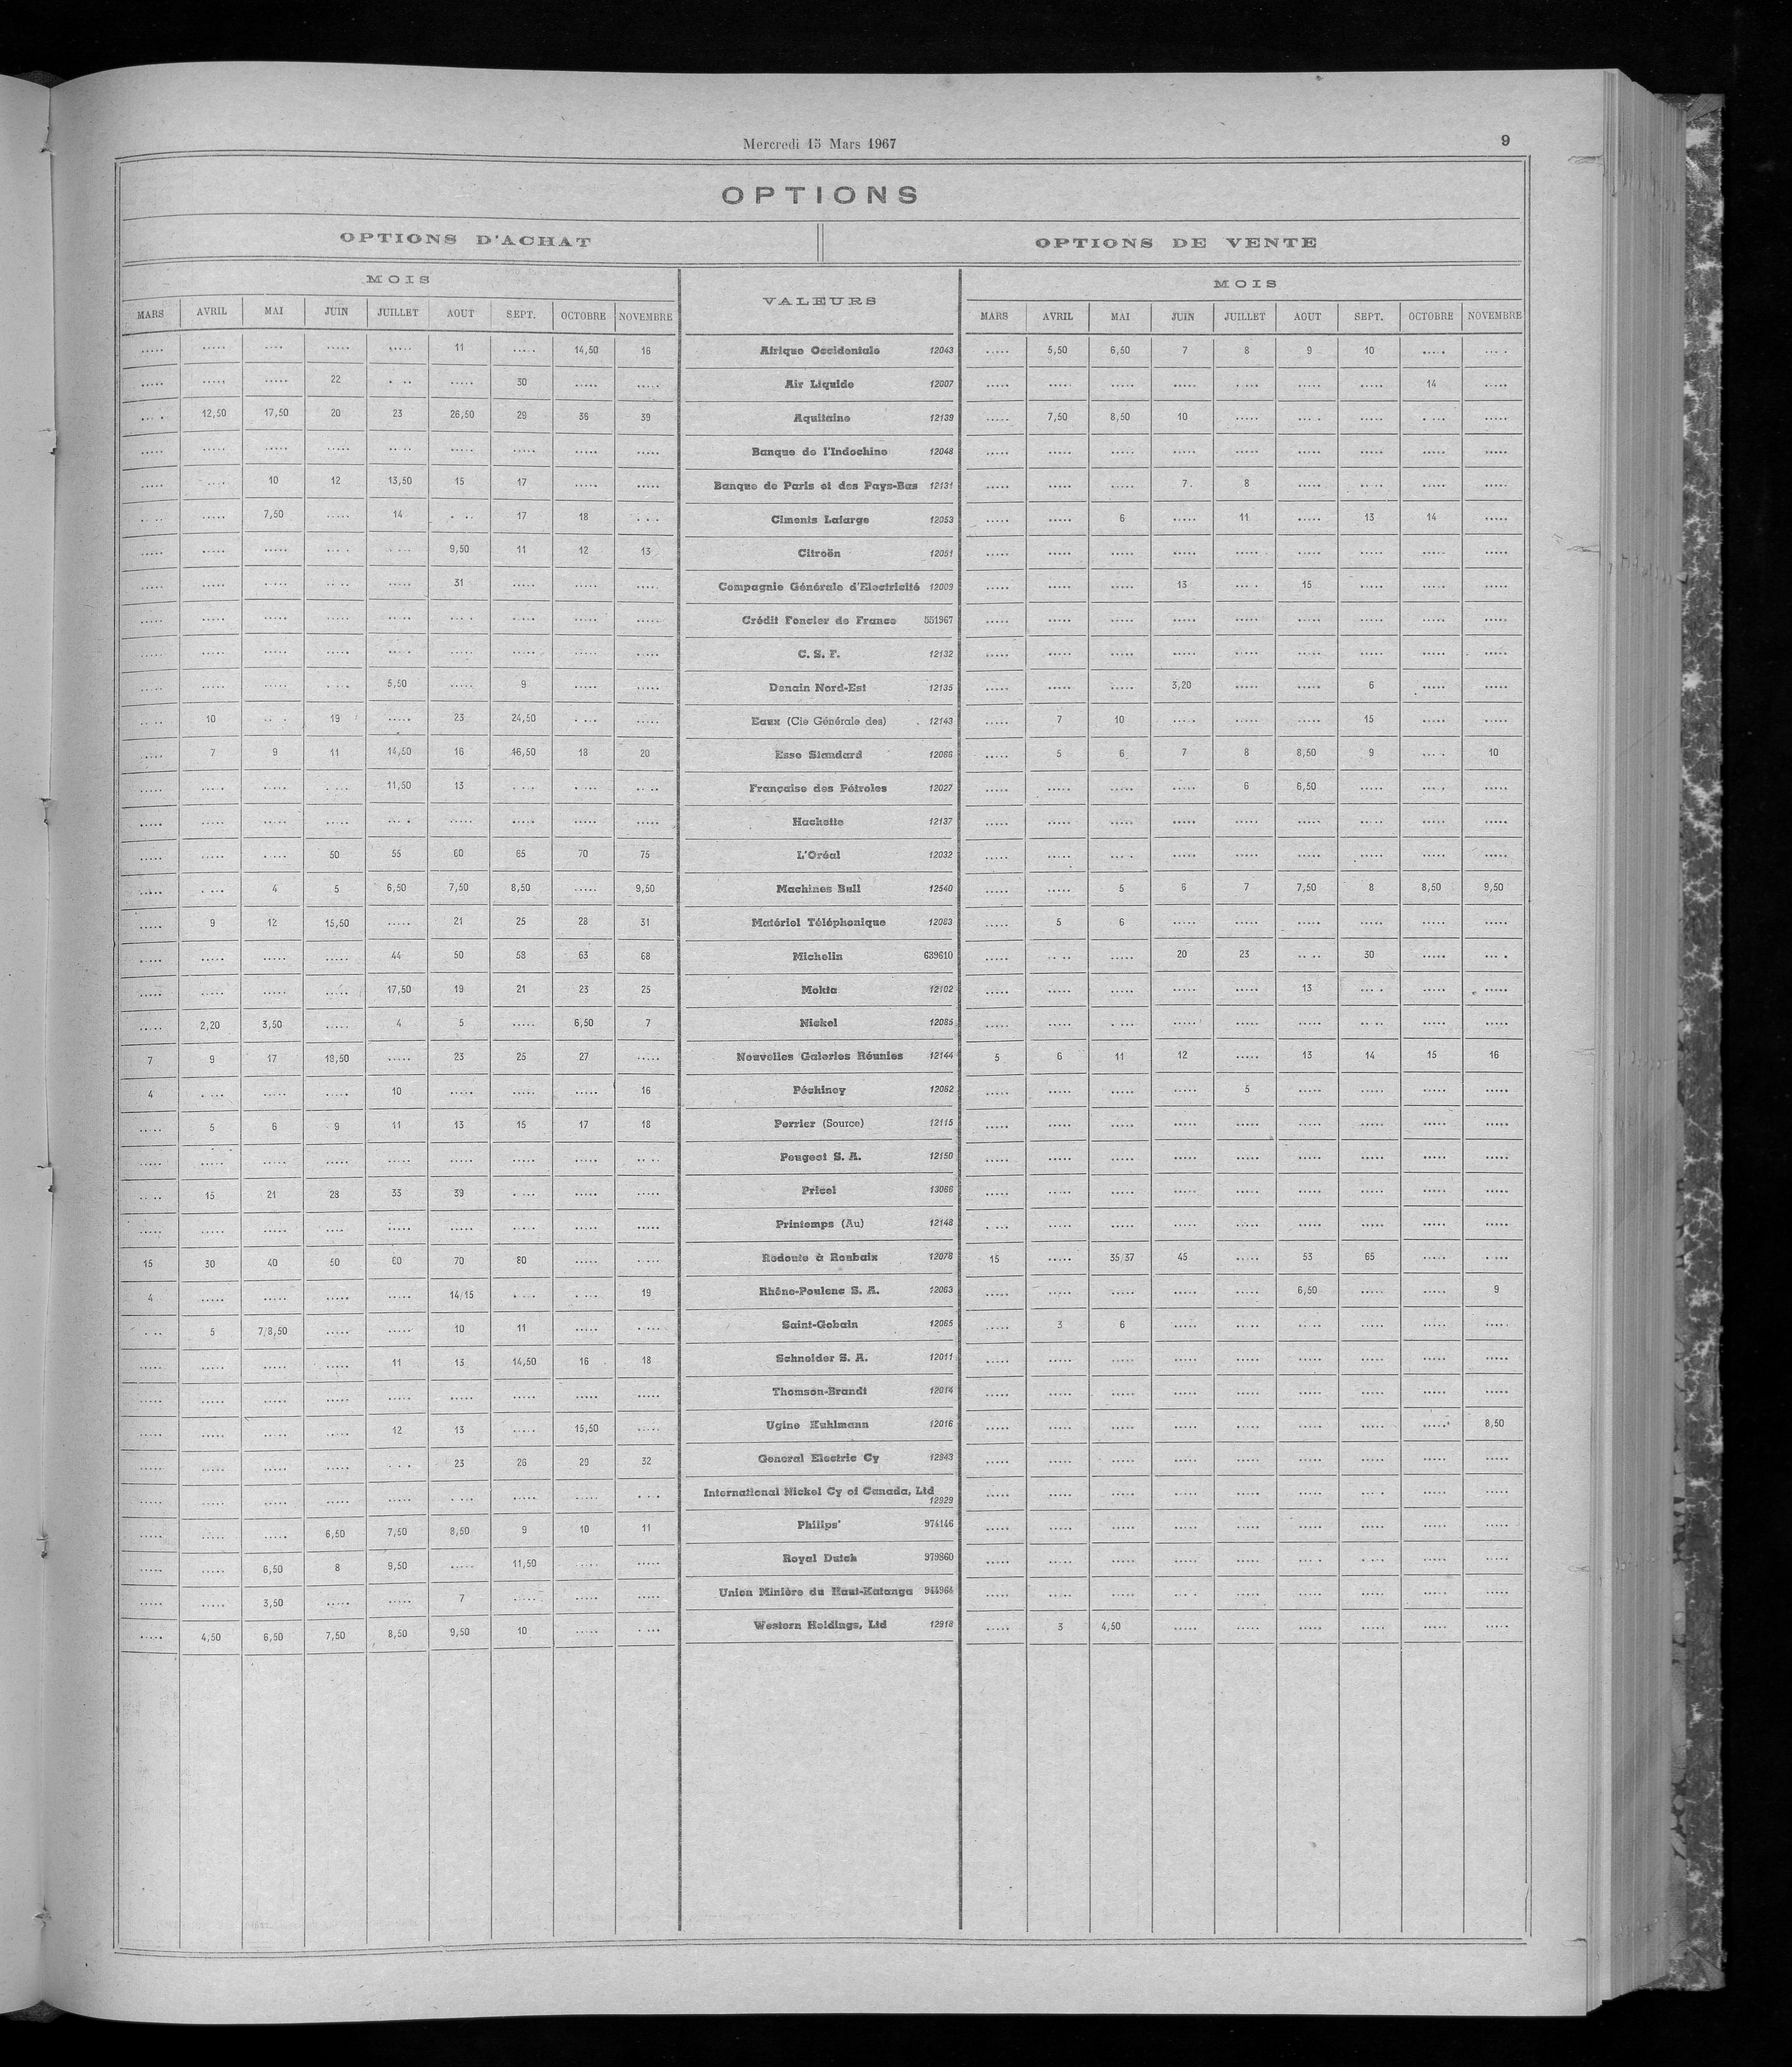 Mercredi 15 Mars 1967 9
OPTIONS
OPTIONS D'ACHAT OPTIONS DE VENTE
MOIS VALEURS MOIS
MARS AVRIL MAI JUIN JUILLET AOUT SEPT. OCTOBRE NOVEMBRE MARS AVRIL MAI JUIN JUILLET AOUT SEPT. OCTOBRE NOVEMBRE
..... ..... ..... ..... ..... 11 ..... 14,50 16 Afrique Occidentale 12043 ..... 5,50 6,50 7 8 9 10 ..... .....
..... ..... ..... 22 ..... ..... 30 ..... ..... Air Liquide 12007 ..... ..... ..... ..... ..... ..... ..... 14 .....
..... 12,50 17,50 20 23 26,50 29 36 39 Aquitaine 12139 ..... 7,50 8,50 10 ..... ..... ..... ..... .....
..... ..... ..... ..... ..... ..... ..... ..... ..... Banque de l'Indochine 12048 ..... ..... ..... ..... ..... ..... ..... ..... .....
..... ..... 10 12 13,50 15 17 ..... ..... Banque de Paris et des Pays-Bas 12131 ..... ..... ..... 7 8 ..... ..... ..... .....
..... ..... 7,50 ..... 14 ..... 17 18 ..... Ciments Lafarge 12053 ..... ..... 6 ..... 11 ..... 13 14 .....
..... ..... ..... ..... ..... 9,50 11 12 13 Citroën 12051 ..... ..... ..... ..... ..... ..... ..... ..... .....
..... ..... ..... ..... ..... 31 ..... ..... ..... Compagnie Générale d'Electricité 12009 ..... ..... ..... 13 ..... 15 ..... ..... .....
..... ..... ..... ..... ..... ..... ..... ..... ..... Crédit Foncier de France 551967 ..... ..... ..... ..... ..... ..... ..... ..... .....
..... ..... ..... ..... ..... ..... ..... ..... ..... C. S. F. 12132 ..... ..... ..... ..... ..... ..... ..... ..... .....
..... ..... ..... ..... 5,50 ..... 9 ..... ..... Denain Nord-Est 12135 ..... ..... ..... 3,20 ..... ..... 6 ..... .....
..... 10 ..... 19 ..... 23 24,50 ..... ..... Eaux (Cie Générale des) 12143 ..... 7 10 ..... ..... ..... 15 ..... .....
..... 7 9 11 14,50 16 16,50 18 20 Esso Standard 12066 ..... 5 6 7 8 8,50 9 ..... 10
..... ..... ..... ..... 11,50 13 ..... ..... ..... Française des Pétroles 12027 ..... ..... ..... ..... 6 6,50 ..... ..... .....
..... ..... ..... ..... ..... ..... ..... ..... ..... Hachette 12137 ..... ..... ..... ..... ..... ..... ..... ..... .....
..... ..... ..... 50 55 60 65 70 75 L'Oréal 12032 ..... ..... ..... ..... ..... ..... ..... ..... .....
..... ..... 4 5 6,50 7,50 8,50 ..... 9,50 Machines Bull 12540 ..... ..... 5 6 7 7,50 8 8,50 9,50
..... 9 12 15,50 ..... 21 25 28 31 Matériel Téléphonique 12083 ..... 5 6 ..... ..... ..... ..... ..... .....
..... ..... ..... ..... 44 50 58 63 68 Michelin 639610 ..... ..... ..... 20 23 ..... 30 ..... .....
..... ..... ..... ..... 17,50 19 21 23 25 Mokta 12102 ..... ..... ..... ..... ..... 13 ..... ..... .....
..... 2,20 3,50 ..... 4 5 ..... 6,50 7 Nickel 12085 ..... ..... ..... ..... ..... ..... ..... ..... .....
7 9 17 18,50 ..... 23 25 27 ..... Nouvelles Galeries Réunies 12144 5 6 11 12 ..... 13 14 15 16
4 ..... ..... ..... 10 ..... ..... ..... 16 Péchiney 12062 ..... ..... ..... ..... 5 ..... ..... ..... .....
..... 5 6 9 11 13 15 17 18 Perrier (Source) 12115 ..... ..... ..... ..... ..... ..... ..... ..... .....
..... ..... ..... ..... ..... ..... ..... ..... ..... Peugeot S. A. 12150 ..... ..... ..... ..... ..... ..... ..... ..... .....
..... 15 21 28 33 39 ..... ..... ..... Pricel 13066 ..... ..... ..... ..... ..... ..... ..... ..... .....
..... ..... ..... ..... ..... ..... ..... ..... ..... Printemps (Au) 12148 ..... ..... ..... ..... ..... ..... ..... ..... .....
15 30 40 50 60 70 80 ..... ..... Redoute à Roubaix 12078 15 ..... 35/37 45 ..... 53 65 ..... .....
4 ..... ..... ..... ..... 14/15 ..... ..... 19 Rhône-Poulenc S. A. 12063 ..... ..... ..... ..... ..... 6,50 ..... ..... 9
..... 5 7/8,50 ..... ..... 10 11 ..... ..... Saint-Gobain 12065 ..... 3 6 ..... ..... ..... ..... ..... .....
..... ..... ..... ..... 11 13 14,50 16 18 Schneider S. A. 12011 ..... ..... ..... ..... ..... ..... ..... ..... .....
..... ..... ..... ..... ..... ..... ..... ..... ..... Thomson-Brandt 12014 ..... ..... ..... ..... ..... ..... ..... ..... .....
..... ..... ..... ..... 12 13 ..... 15,50 ..... Ugine Kuhlmann 12016 ..... ..... ..... ..... ..... ..... ..... ..... 8,50
..... ..... ..... ..... ..... 23 26 29 32 General Electric Cy 12943 ..... ..... ..... ..... ..... ..... ..... ..... .....
..... ..... ..... ..... ..... ..... ..... ..... ..... International Nickel Cy of Canada, Ltd 12929 ..... ..... ..... ..... ..... ..... ..... ..... .....
..... ..... ..... 6,50 7,50 8,50 9 10 11 Philips' 974146 ..... ..... ..... ..... ..... ..... ..... ..... .....
..... ..... 6,50 8 9,50 ..... 11,50 ..... ..... Royal Dutch 979860 ..... ..... ..... ..... ..... ..... ..... ..... .....
..... ..... 3,50 ..... ..... 7 ..... ..... ..... Union Minière du Haut-Katanga 944964 ..... ..... ..... ..... ..... ..... ..... ..... .....
..... 4,50 6,50 7,50 8,50 9,50 10 ..... ..... Western Holdings, Ltd 12918 ..... 3 4,50 ..... ..... ..... ..... ..... .....